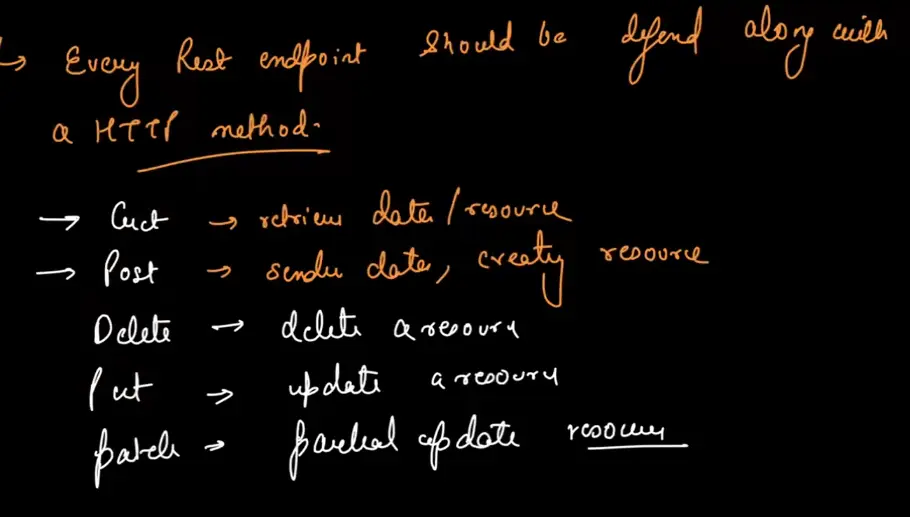 → Every Rest endpoint should be defined along with
a HTTP method.
→ Get → retrieve data/resource
→ Post → sending data, creating resource
Delete → delete a resource
Put → update a resource
patch → partial update resource